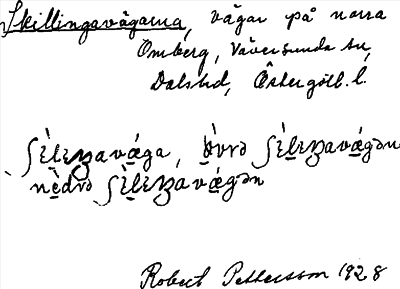 Skillingavägarna, vägar på norra
Omberg, Väversunda sn,
Dalshd, Östergötl. l.
ʃɛ̀lɩŋavǽga, ɵ̀vrə ʃɛ̀lɩŋavǽgən
nèdrə ʃɛ̀lɩŋavǽgən
Robert Pettersson 1928